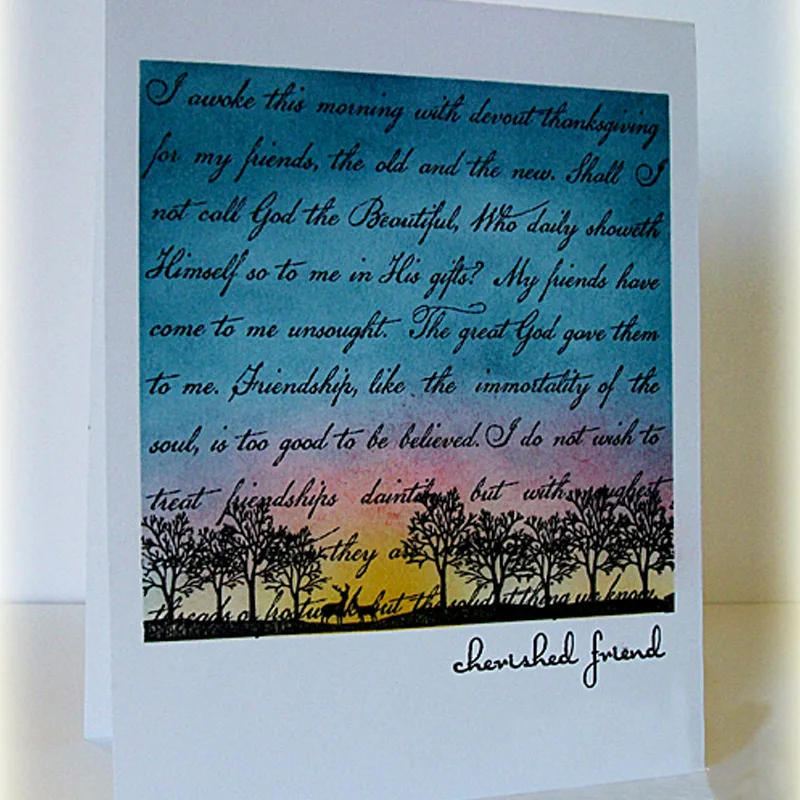 I awoke this morning with devout thanksgiving
for my friends, the old and the new. Shall I
not call God the Beautiful, Who daily showeth
Himself so to me in His gifts? My friends have
come to me unsought. The great God gave them
to me. Friendship, like the immortality of the
soul, is too good to be believed. I do not wish to
treat friendships daintily, but with roughest
they
threads or but the solidest thing we know.
cherished friend